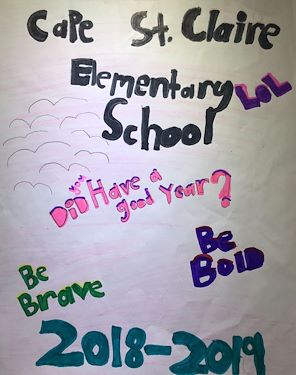 Cape St. Claire
Elementary
LOL
School
DiD Have a
good Year?
Be
BOLD
Be
Brave
2018-2019